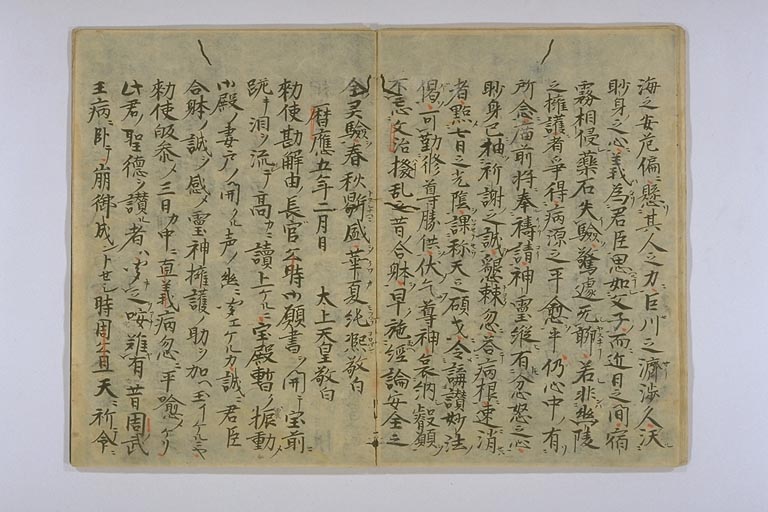 海之安危偏ニ懸其人之力巨川之済渉久沃
眇身之心義為君臣思如父子而近日之間宿
霧相侵薬石失験驚遽无聊若非幽陵
之擁護者争得病源之平愈乎仍心中有
所念廟前将奉祷請神霊縦有忿怒之心
眇身已抽祈謝之誠懇棘忽答病根速消
者點七日之光陰課弥天之碩才令講讃妙法
偈可勤修尊勝供伏乞尊神哀納叡願
不忘文治撥乱之昔合躰早施経論安全之
今霊験春秋鼎盛華夏純熙敬白
暦應五年二月日 太上天皇敬白
勅使勘解由長官公時御願書ヲ開テ宝前
跪キ泪ヲ流テ高カニ讀上ケルニ宝殿暫ク振動メ
御殿ノ妻戸ノ開ル声ノ幽ニ聞エケルカ誠ニ君臣
合躰ノ誠ヲ感メ霊神擁護ノ助ヲ加ヘ玉イケルニヤ
勅使皈参メ三日カ中ニ直義病忽ニ平喩シケリ
此君ノ聖徳ヲ讃ル者ハ聞之哎難有昔周武
王病ニ卧テ崩御成ントセシ時周公旦天ニ祈テ命ニ